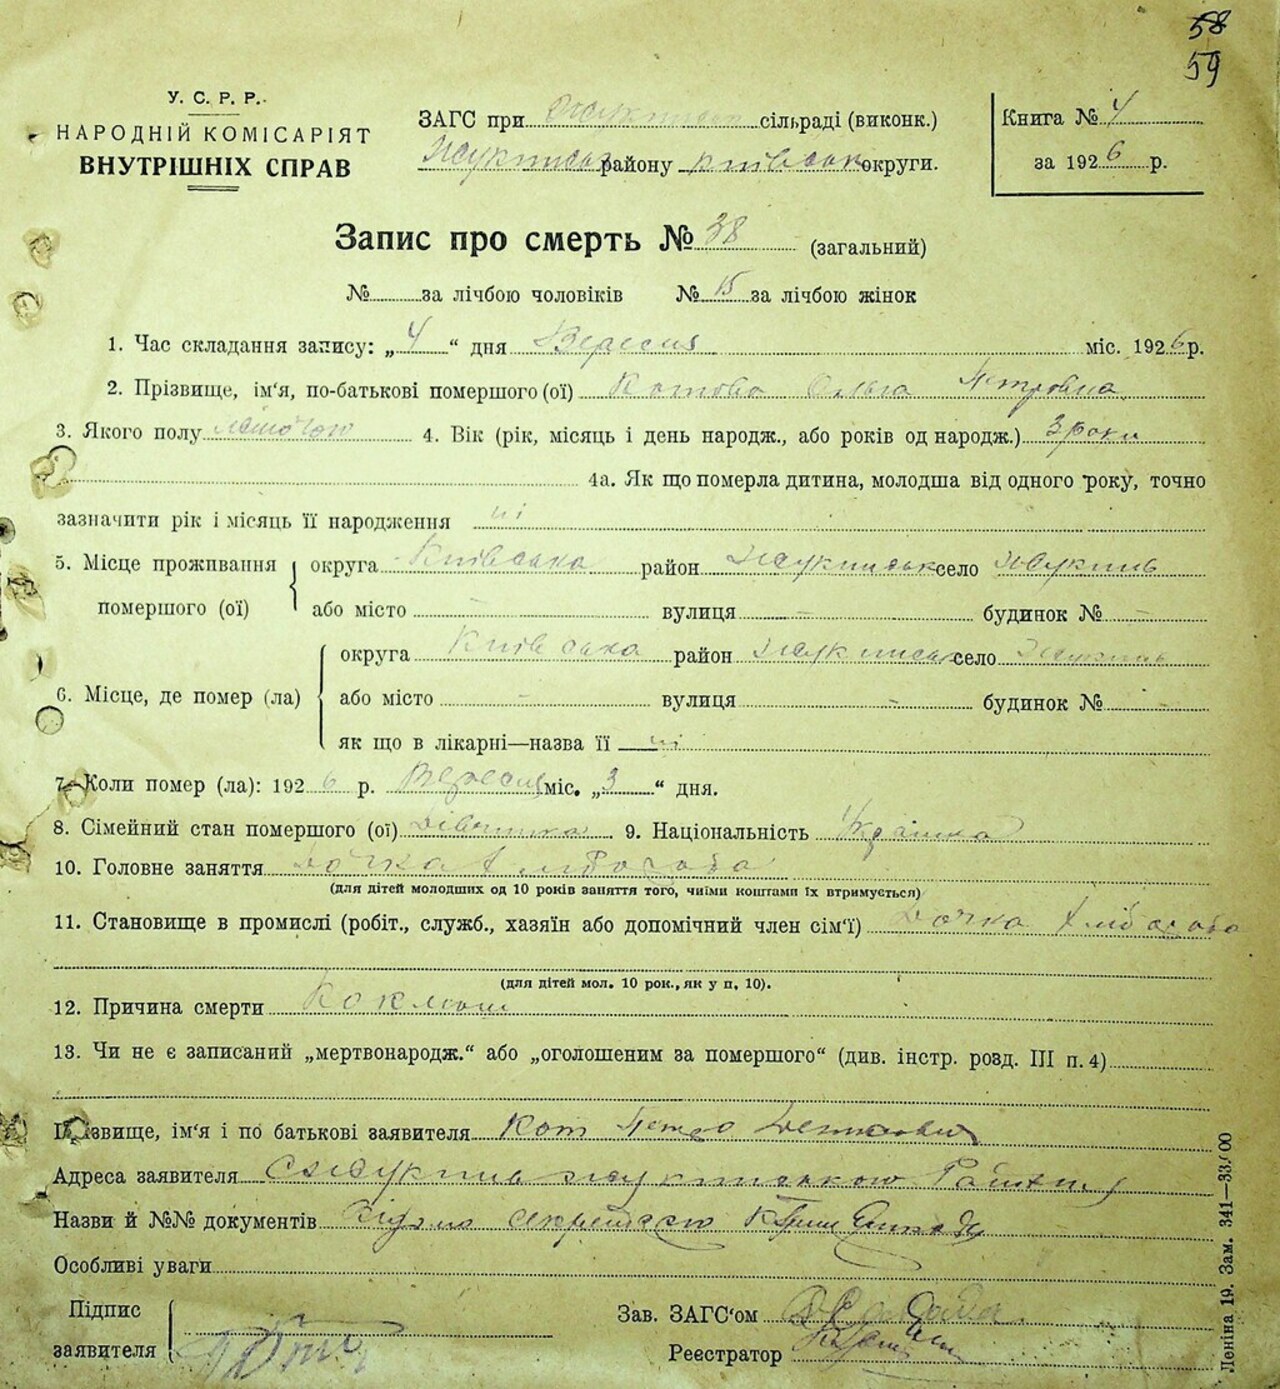 58
59
У. С. Р. Р.
НАРОДНІЙ КОМІСАРІЯТ
ВНУТРІШНІХ СПРАВ
ЗАГС при Жукинськ сільраді (виконк.)
Жукинськ району київськ округи.
Книга № 4
за 1926 р.
Запис про смерть № 38 (загальний)
№ за лічбою чоловіків № 15 за лічбою жінок
1. Час складання запису: „4“ дня Вересня міс. 1926 р.
2. Прізвище, ім'я, по-батькові помершого (ої) Котова Ольга Петровна
3. Якого полу жіночого 4. Вік (рік, місяць і день народж., або років од народж.) 3 роки
4а. Як що померла дитина, молодша від одного року, точно
зазначити рік і місяць її народження ні
5. Місце проживання помершого (ої) округа Київська район Жукинськ село Жукинь
або місто вулиця будинок №
6. Місце, де помер (ла) округа Київська район Жукинськ село Жукинь
або місто вулиця будинок №
як що в лікарні—назва її ні
7. Коли помер (ла): 1926 р. Вересня міс. „3“ дня.
8. Сімейний стан помершого (ої) Дівчинка 9. Національність Українка
10. Головне заняття Дочка хлібороба
(для дітей молодших од 10 років заняття того, чиїми коштами їх втримується)
11. Становище в промислі (робіт., служб., хазяїн або допомічний член сім'ї) Дочка хлібороба
(для дітей мол. 10 рок., як у п. 10).
12. Причина смерти Коклюш
13. Чи не є записаний „мертвонародж.“ або „оголошеним за помершого“ (див. інстр. розд. III п. 4)
Прізвище, ім'я і по батькові заявителя Кот Петро
Адреса заявителя с Жукинь Жукинського Району
Назви й №№ документів
Особливі уваги
Підпис заявителя
Зав. ЗАГС'ом
Реєстратор
Леніна 19. Зам. 341—33/00